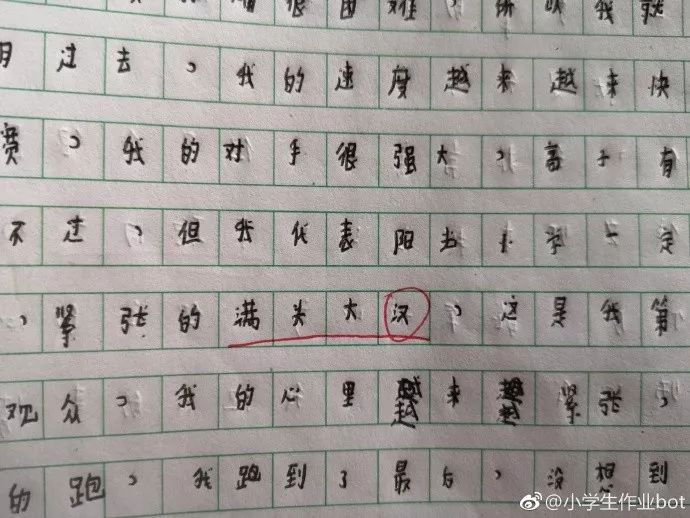 很困难，所以我就
过去，我的速度越来越来快
赛，我的对手很强大，高 有
不过，但我代表阳光小学一定
，紧张的满头大汉，这是我第
观众，我的心里越来越紧张，
的跑，我跑到了最后，没想到
@小学生作业bot